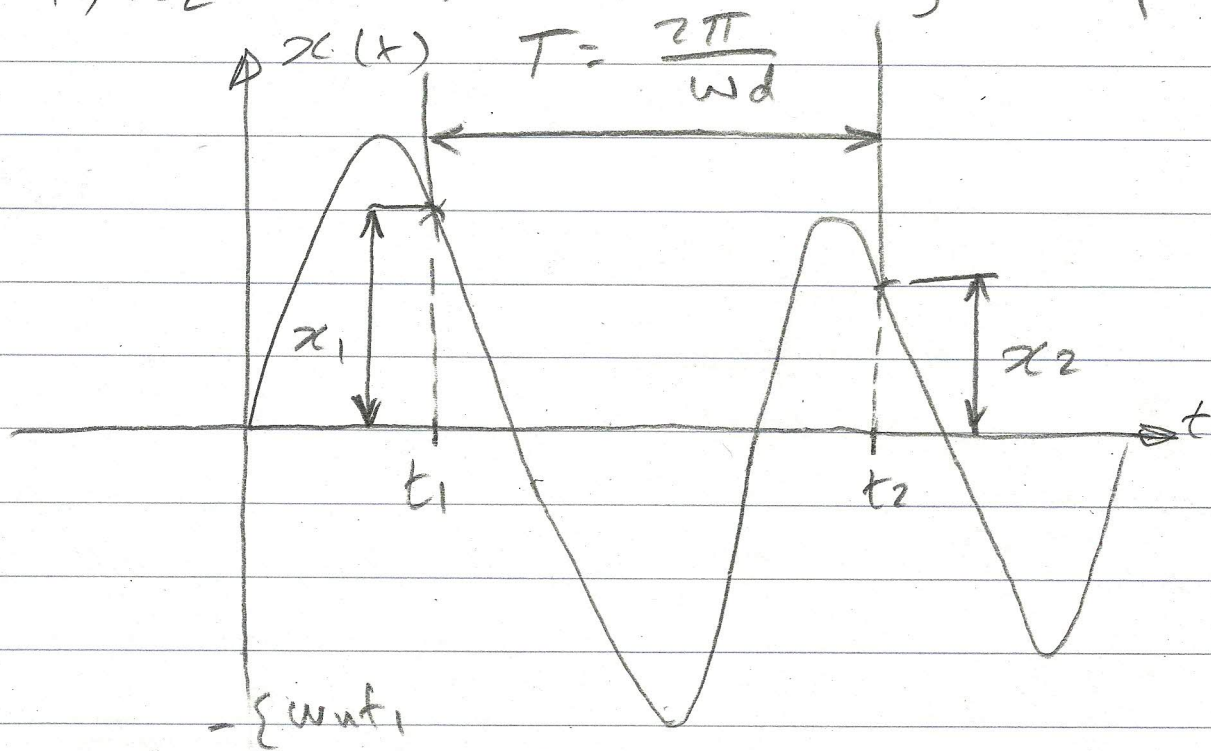 x(t) T = 2π
ωd
x1
x2
t
t1
t2
- ζωnt1